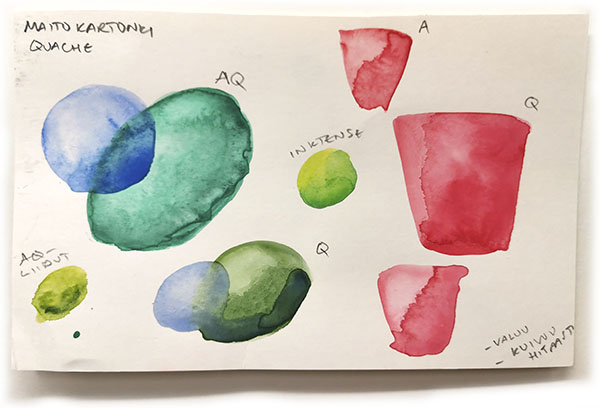 MAITOKARTONKI
QUACHE
A
AQ
Q
INKTENSE
AQ-
LIIDUT
Q
- VALUU
- KUIVUU
HITAASTI